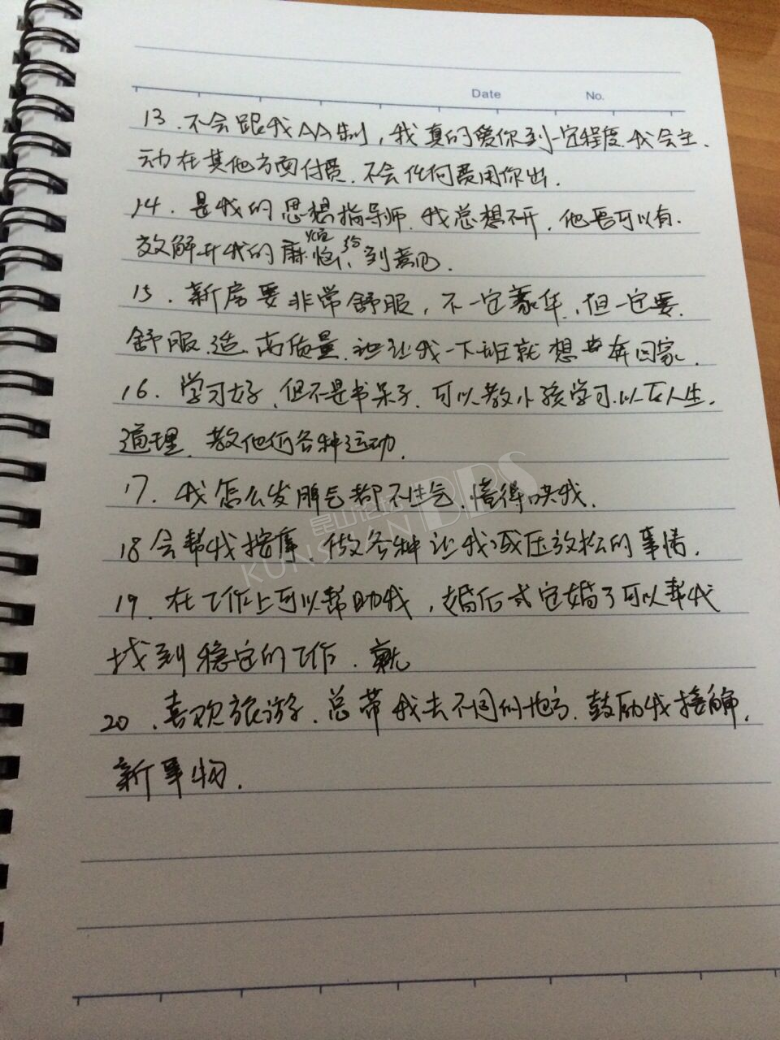 Date No.
13、不会跟我AA制，我真的爱你到一定程度.我会主.
动在其他方面付费.不会任何费用你出.
14、是我的思想指导师.我总想不开，他总可以有.
效解开我的麻烦、给到意见.
15、新房要非常舒服，不一定豪华,但一定要
舒服.造.高质量.让我一下班就想奔回家.
16、学习好,但不是书呆子,可以教小孩学习.以及人生.
道理.教他们各种运动.
17、我怎么发脾气都不生气.懂得哄我.
18会帮我按摩.做各种让我减压放松的事情.
19、在工作上可以帮助我，婚后或定婚了可以帮我
找到稳定的工作.就
20、喜欢旅游.总带我去不同的地方.鼓励我接触.
新事物.
昆山论坛
KUNSHAN BBS